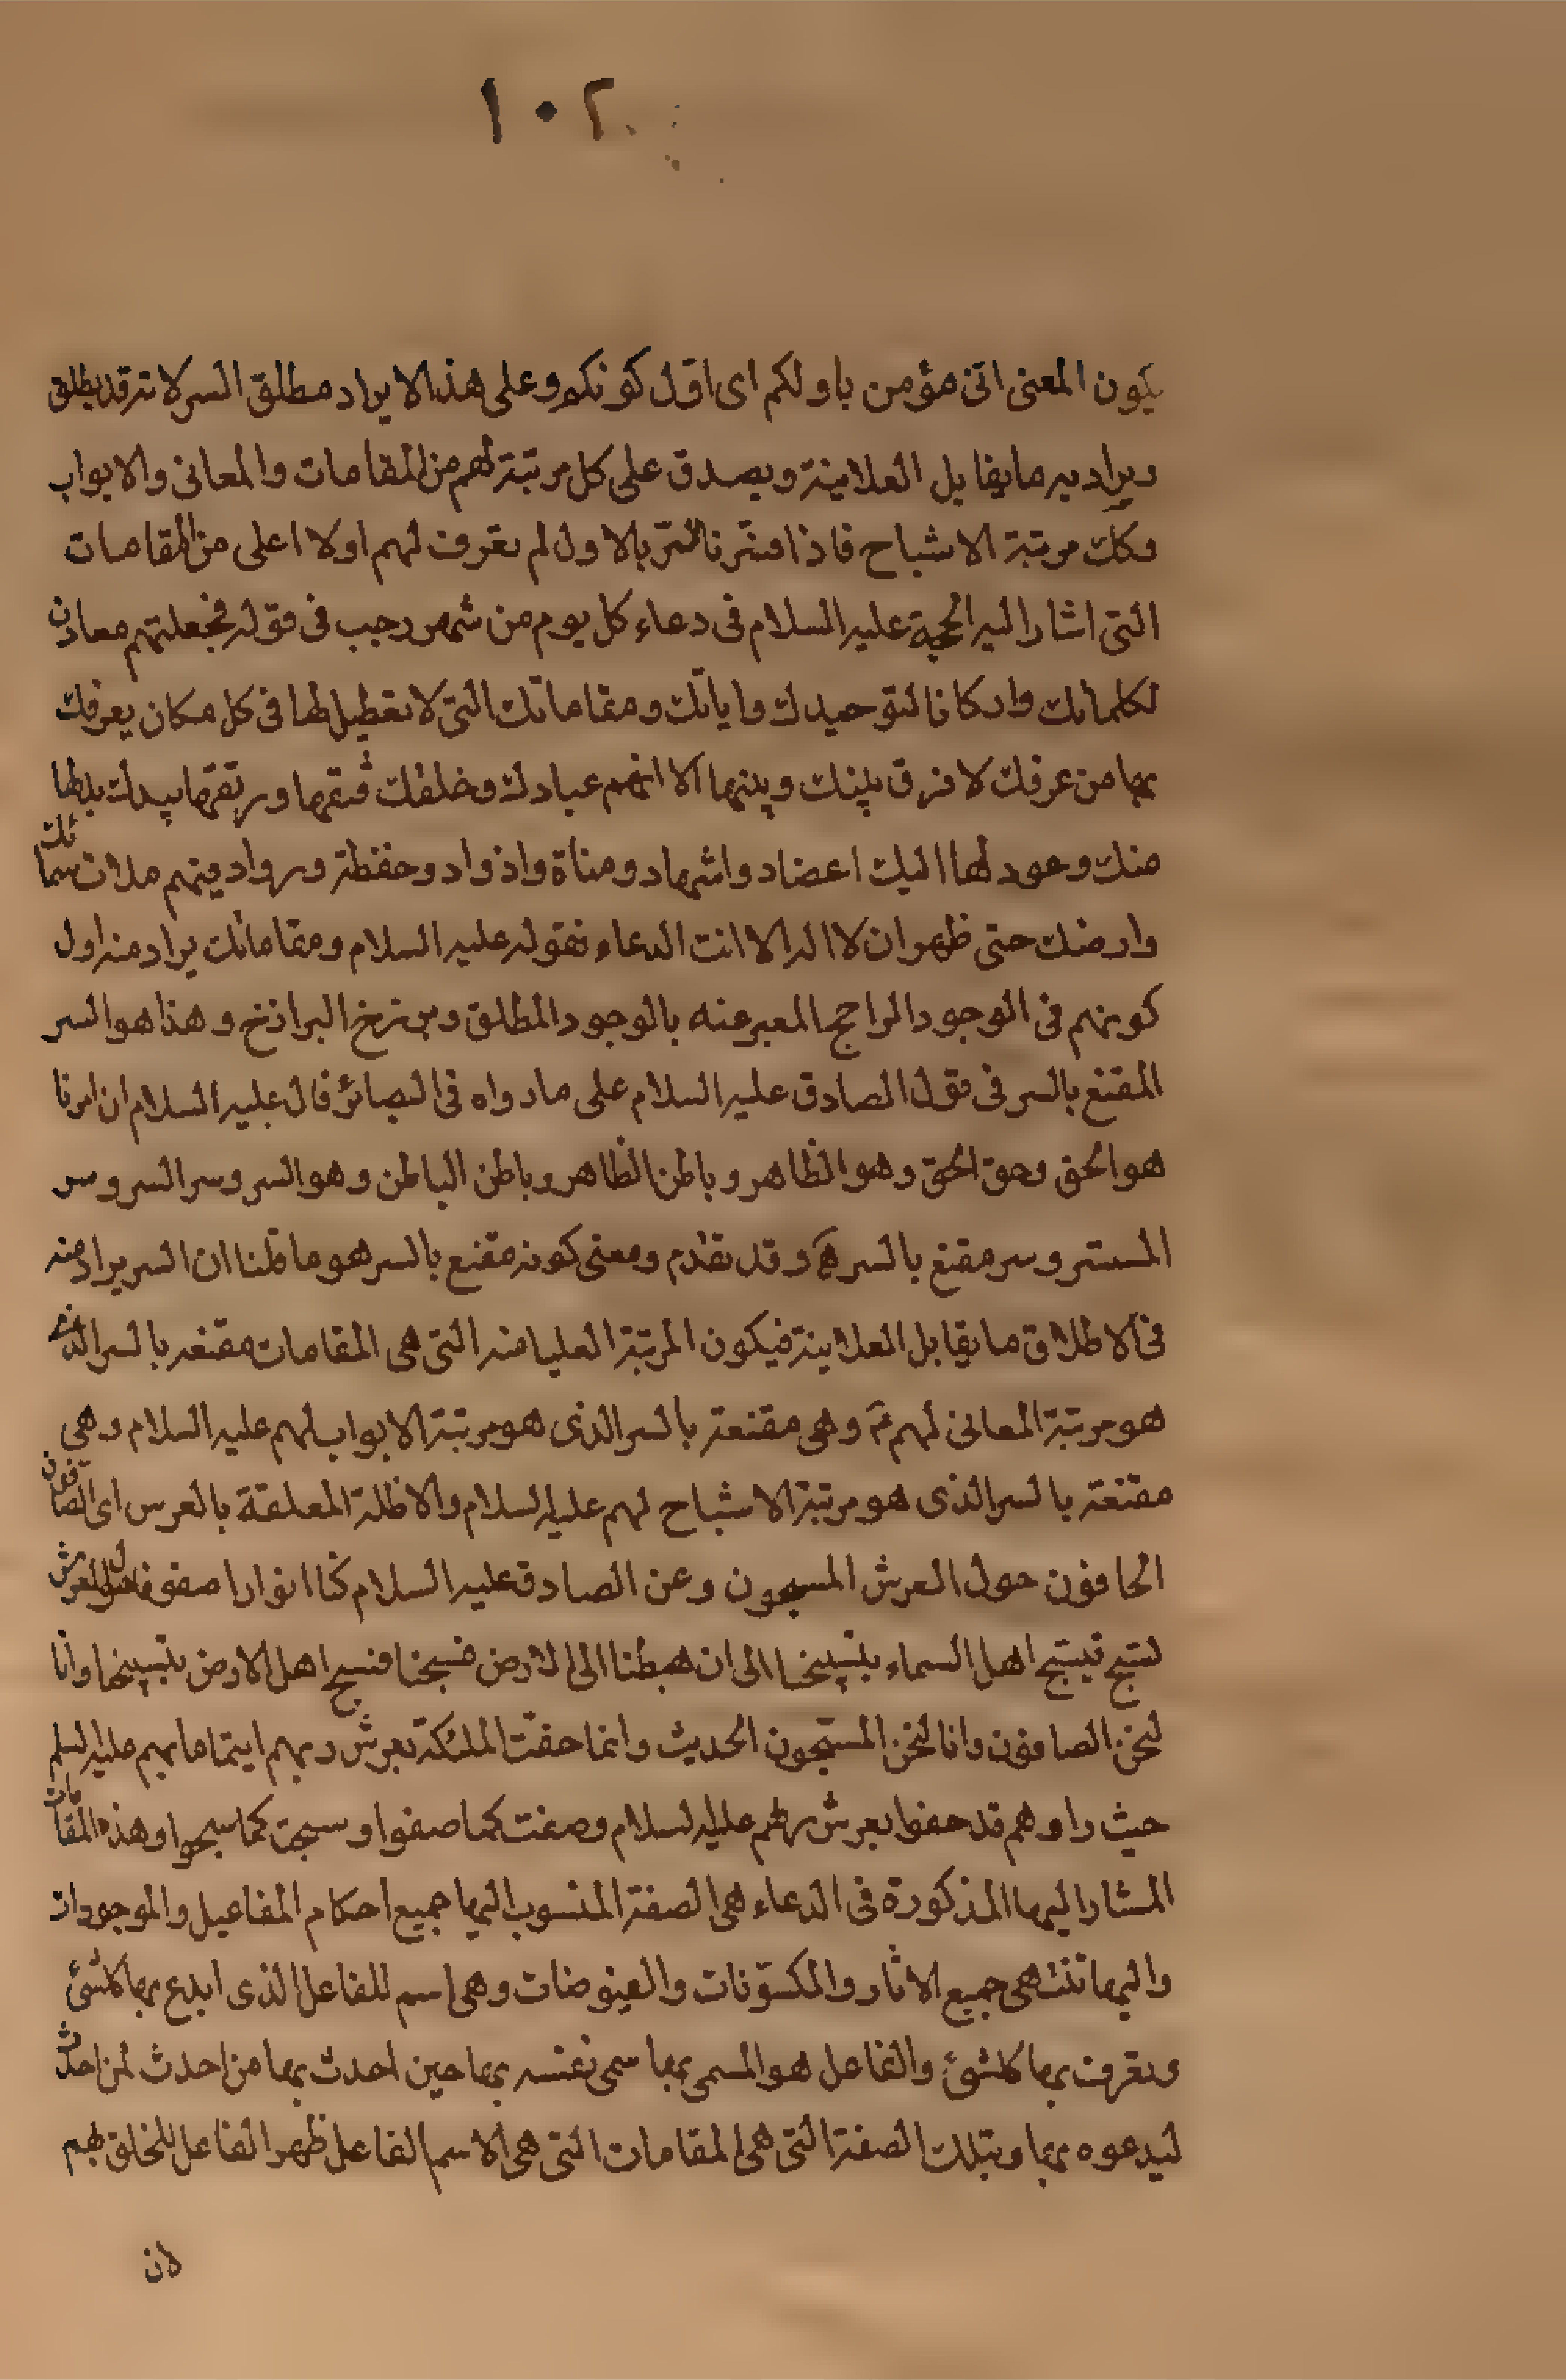 ١٠٢
يكون المعنى انى مؤمن باولكم اى اوّل كونكم وعلى هذا لا يراد مطلق السر لانه قد يطلق
ويراد به ما يقابل العلانية ويصدق على كل مرتبة لهم من المقامات والمعانى والابواب
وكك مرتبة الاشباح فاذا فسّرنا السّر بالاول لم نعرف لهم اولا اعلى من المقامات
التى اشار اليه الحجة عليه السلام فى دعاء كل يوم من شهر رجب فى قوله فجعلتهم معادن
لكلماتك واركانا لتوحيدك واياتك ومقاماتك التى لا تعطيل لها فى كل مكان يعرفك
بها من عرفك لا فرق بينك وبينها الا انهم عبادك وخلقك فتقها ورتقها بيدك بدؤها
منك وعودها اليك اعضاد واشهاد ومناة واذواد وحفظة ورواد فبهم ملات سمائك
وارضك حتى ظهر ان لا اله الا انت الدعاء فقوله عليه السلام ومقاماتك يراد منه اول
كونهم فى الوجود الراجح المعبر عنه بالوجود المطلق وبرزخ البرازخ وهذا هو السر
المقنع بالسر فى قول الصادق عليه السلام على ما رواه فى البصائر قال عليه السلام ان امرنا
هو الحق وحق الحق وهو الظاهر وباطن الظاهر وباطن الباطن وهو السر وسر السر وسر
المستسر وسر مقنع بالسر وقد تقدم ومعنى كونه مقنع بالسر هو ما قلنا ان السر يراد منه
فى الاطلاق ما يقابل العلانية فيكون المرتبة العليا منه التى هى المقامات مقنعه بالسر الذى
هو مرتبة المعانى لهم ع وهى مقنعة بالسر الذى هو مرتبة الابواب لهم عليه السلام وهى
مقنعة بالسر الذى هو مرتبة الاشباح لهم عليه السلام والاظلة المعلقة بالعرس اى الصافون
الحافون حول العرش المسبحون وعن الصادق عليه السلام كنا انوارا صفوفا حول العرش
نسبّح فيسبّح اهل السماء بتسبيحنا الى ان هبطنا الى الارض فسبحنا فسبح اهل الارض بتسبيحنا وانا
لنحن الصافون وانا لنحن المسبّحون الحديث وانما حفّت الملئكة بعرش ربهم ايتماما بهم عليه السلم
حيث راوهم قد حفوا بعرش ربهم عليه السلام وصفت كما صفوا وسبحت كما سبحوا وهذه المقامات
المشار اليها المذكورة فى الدعاء هى الصفة المنسوب اليها جميع احكام المفاعيل والموجودات
واليها تنتهى جميع الاثار والمكوّنات والفيوضات وهى اسم للفاعل الذى ابدع بها كلشئ
وتعرف بها كلشئ والفاعل هو المسمى بها سمى نفسه بها حين احدث بها من احدث لمن احدث
ليدعوه بها وبتلك الصفة التى هى المقامات التى هى الاسم الفاعل ظهر الفاعل للخلق بهم